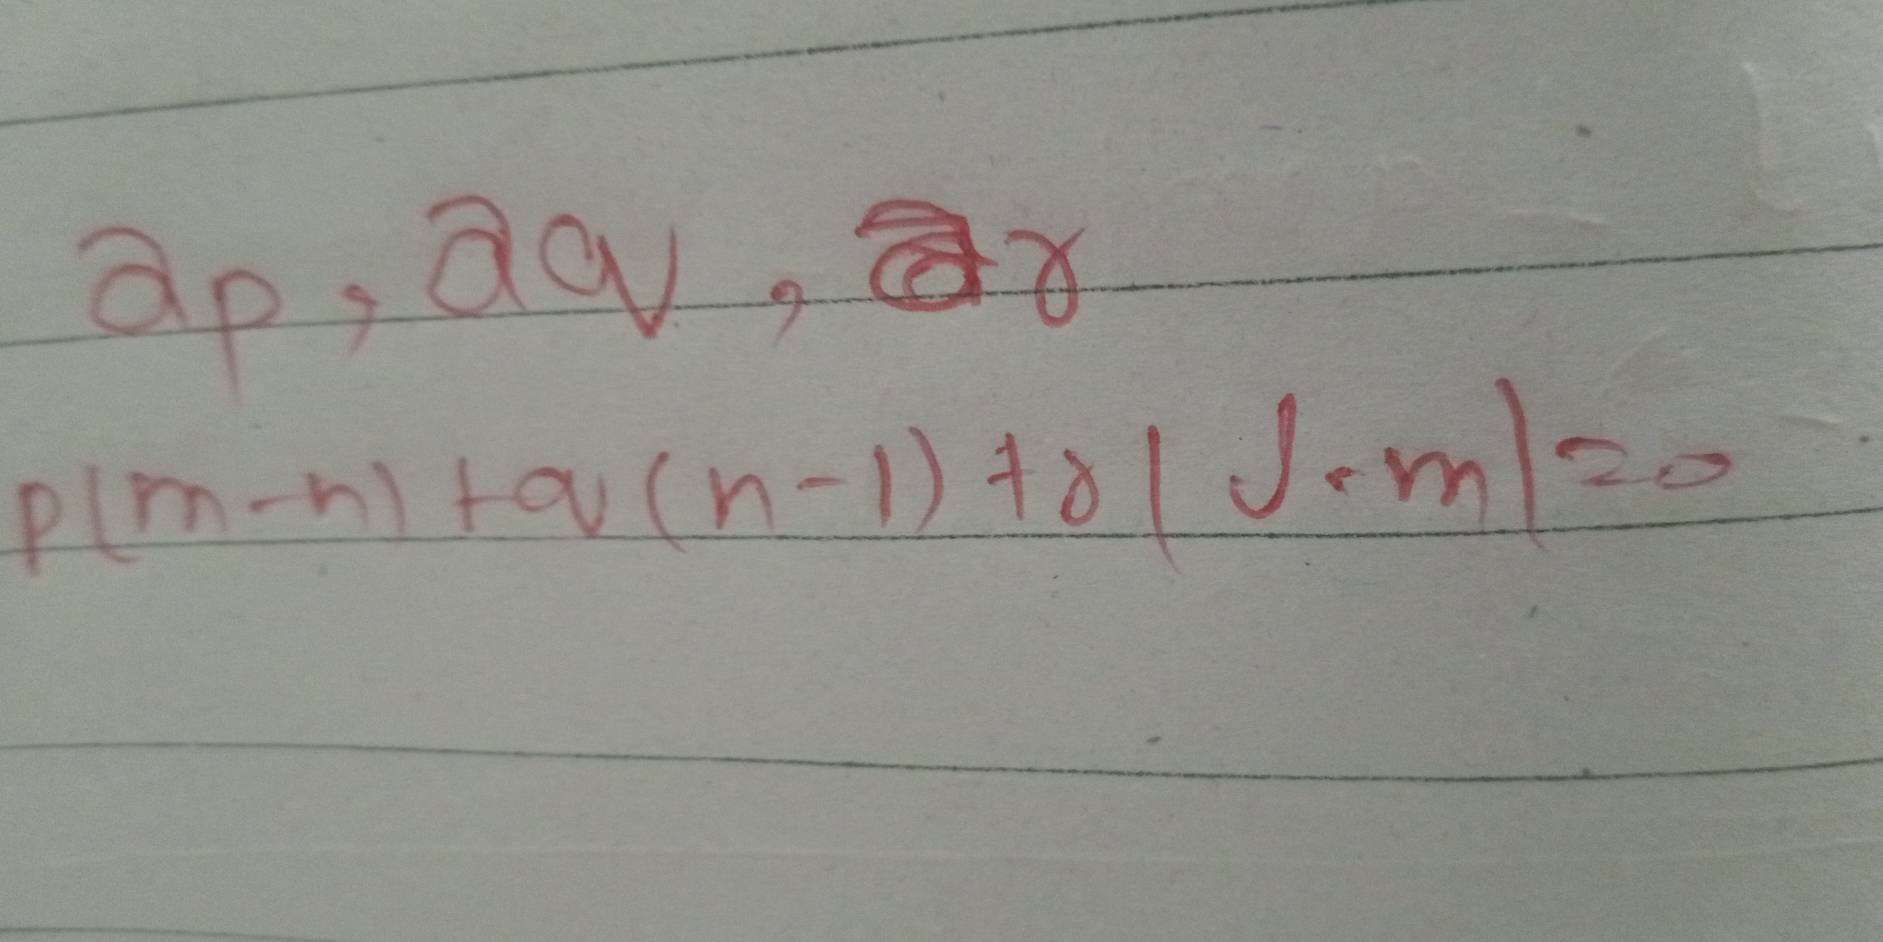 ap, aq, ar
p(m-n) + q(n-1) + r(J-m)=0